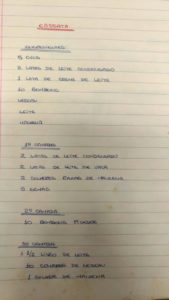 CASSATA
INGREDIENTES
5 OVOS
2 LATAS DE LEITE CONDENSADO
1 LATA DE CREME DE LEITE
10 BOMBONS
NESCAU
LEITE
MAIZENA
1ª CAMADA
2 LATAS DE LEITE CONDENSADO
2 LATAS DE LEITE DE VACA
2 COLHERES RASAS DE MAIZENA
5 GEMAS
2ª CAMADA
10 BOMBONS PICADOS
3ª CAMADA
1 1/2 LITRO DE LEITE
10 COLHERES DE NESCAU
1 COLHER DE MAIZENA